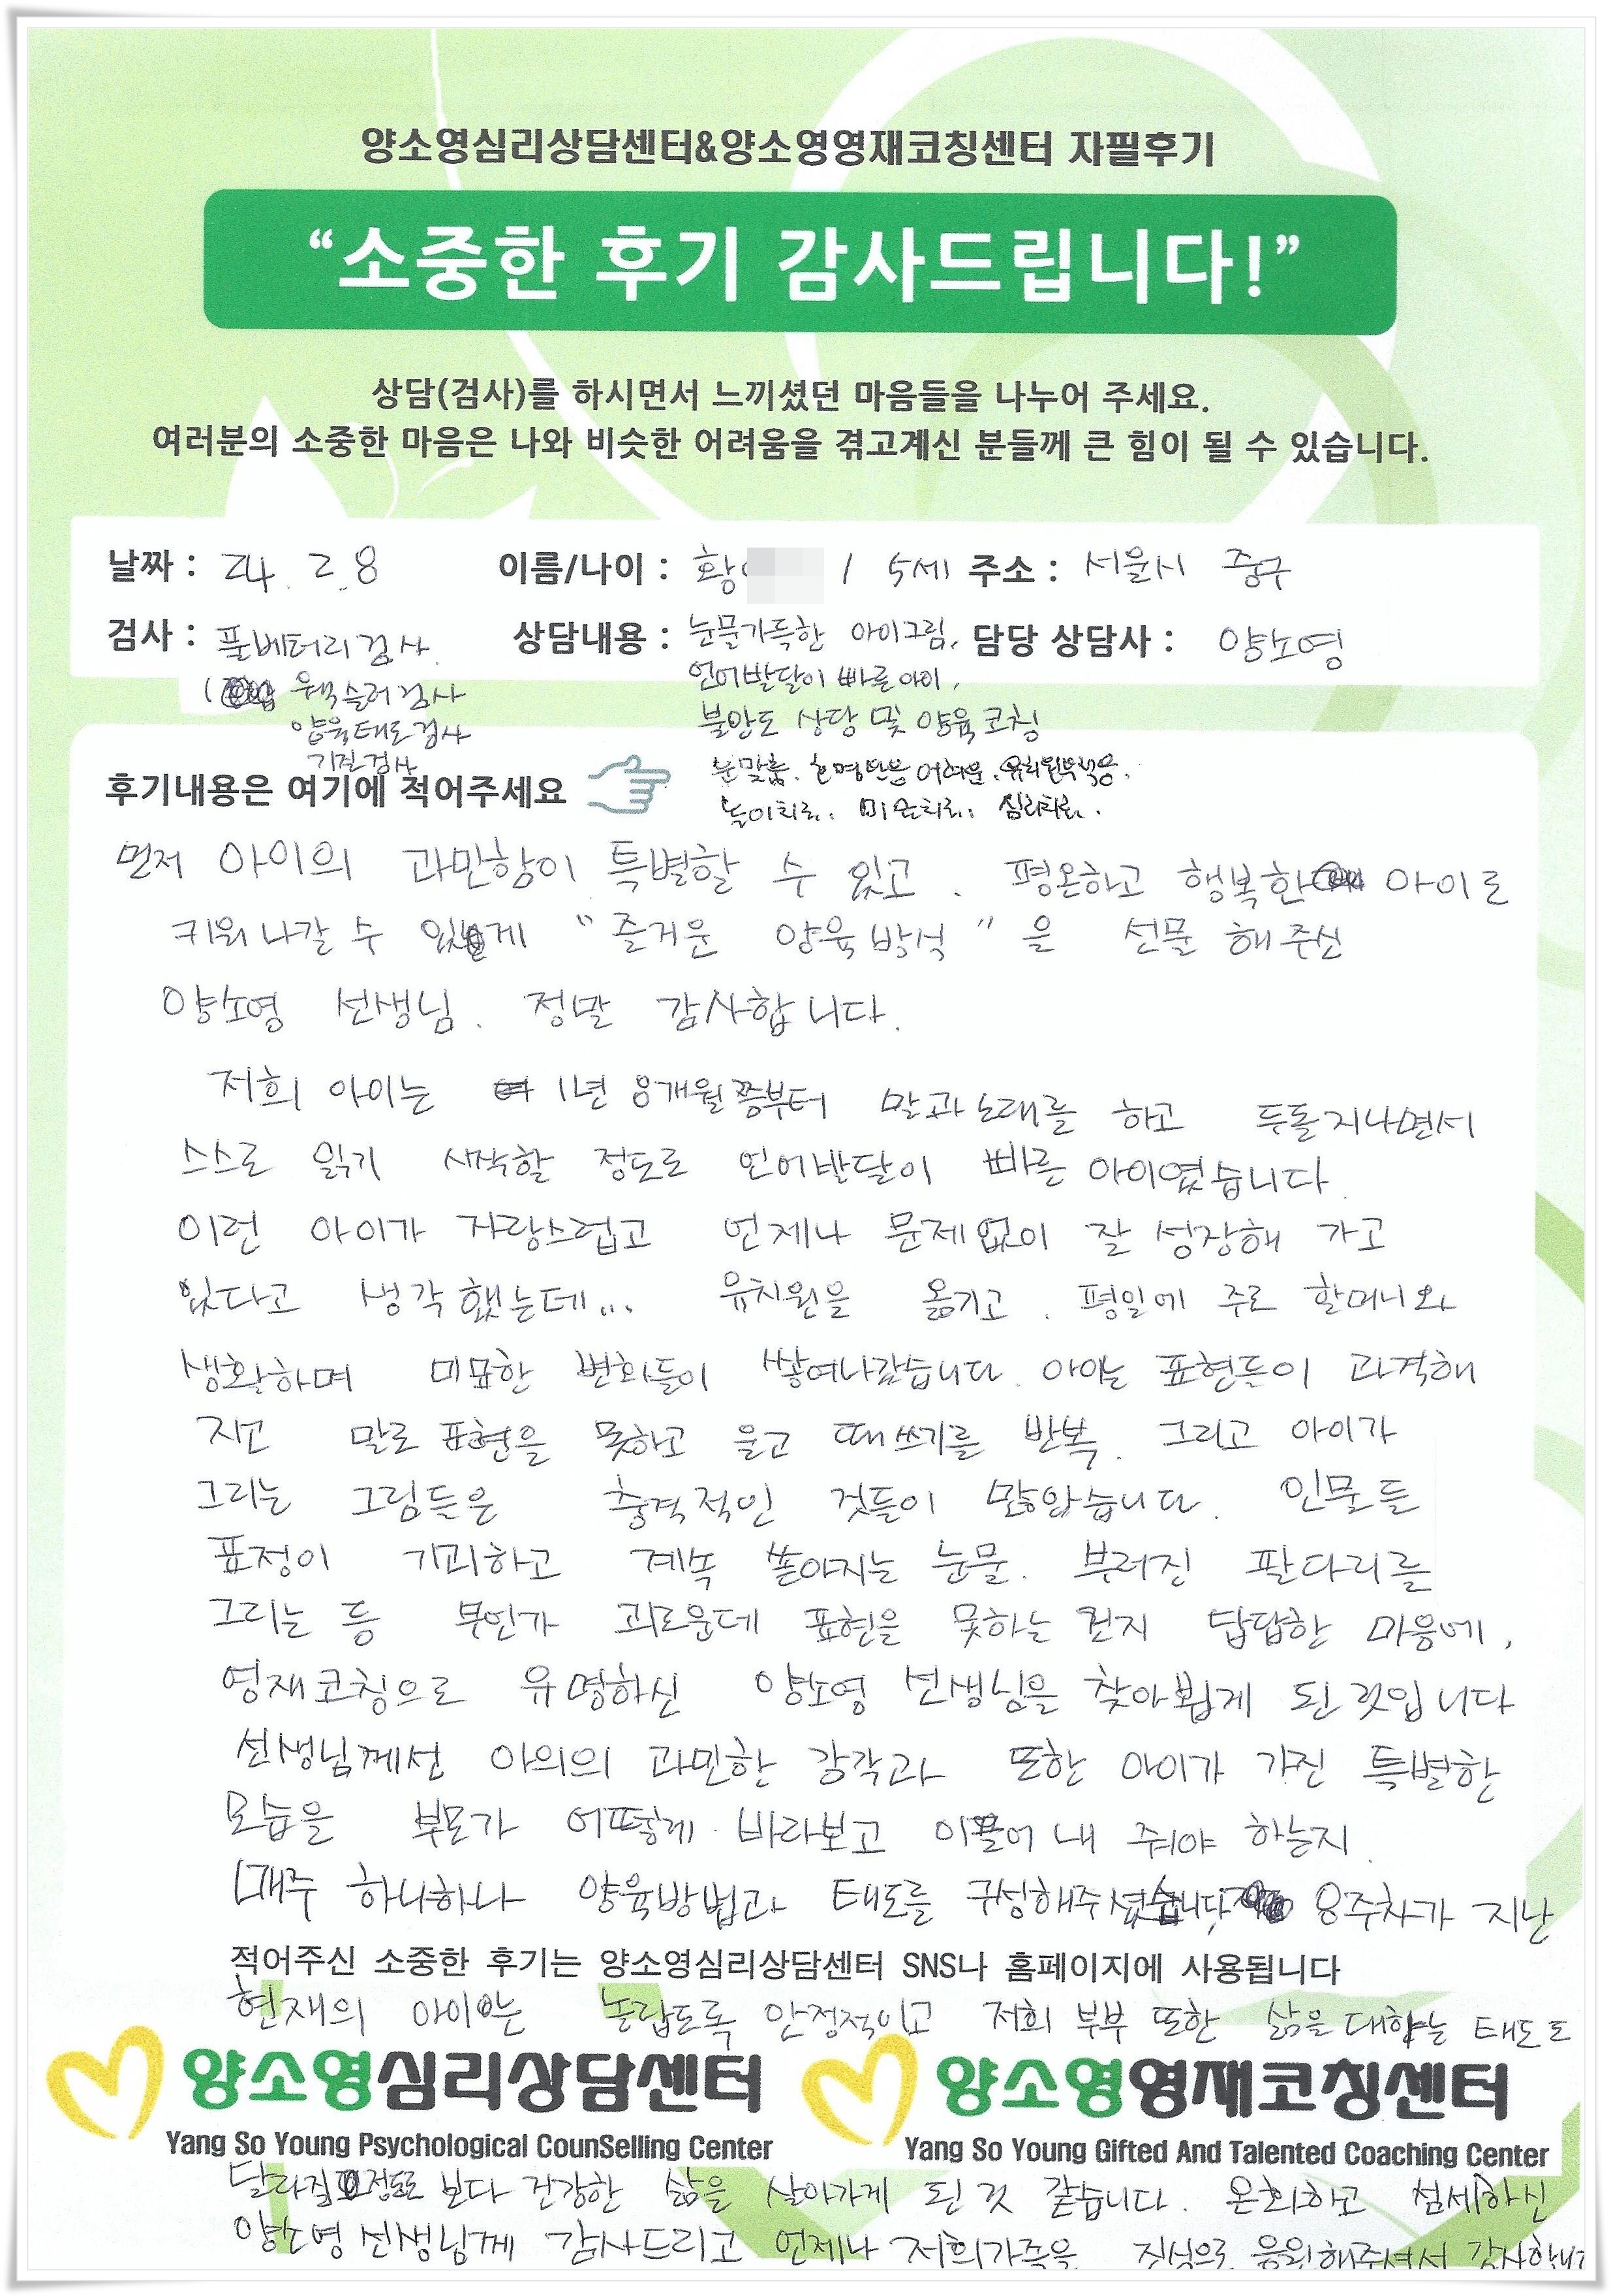 양소영심리상담센터&양소영영재코칭센터 자필후기
“소중한 후기 감사드립니다!”
상담(검사)를 하시면서 느끼셨던 마음들을 나누어 주세요.
여러분의 소중한 마음은 나와 비슷한 어려움을 겪고계신 분들께 큰 힘이 될 수 있습니다.
날짜 : 24. 2. 8 이름/나이 : 황 / 5세 주소 : 서울시 중구
검사 : 풀베터리검사. 상담내용 : 눈물가득한 아이그림, 담당 상담사 : 양소영
( 웩슬러검사 언어발달이 빠른아이,
양육태도검사 불안도 상담 및 양육코칭
기질검사 눈맞춤.
후기내용은 여기에 적어주세요 놀이치료. 미술치료. 심리치료.
먼저 아이의 과민함이 특별할 수 있고. 평온하고 행복한 아이로
키워나갈 수 있게 “즐거운 양육방식”을 선물 해주신
양소영 선생님. 정말 감사합니다.
저희 아이는 1년 8개월쯤부터 말과노래를 하고 두돌지나면서
스스로 읽기 시작할 정도로 언어발달이 빠른 아이였습니다
이런 아이가 자랑스럽고 언제나 문제없이 잘 성장해 가고
있다고 생각했는데... 유치원을 옮기고. 평일에 주로 할머니와
생활하며 미묘한 변화들이 쌓여나갔습니다. 아이는 표현들이 과격해
지고 말로 표현을 못하고 울고 떼쓰기를 반복. 그리고 아이가
그리는 그림들은 충격적인 것들이 많았습니다. 인물들
표정이 기괴하고 계속 쏟아지는 눈물. 부러진 팔다리를
그리는 등 무언가 괴로운데 표현을 못하는 건지 답답한 마음에,
영재코칭으로 유명하신 양소영 선생님을 찾아뵙게 된것입니다
선생님께선 아이의 과민한 감각과 또한 아이가 가진 특별한
모습을 부모가 어떻게 바라보고 이끌어 내 줘야 하는지.
매주 하나하나 양육방법과 태도를 구성해주셨습니다. 8주차가 지난
적어주신 소중한 후기는 양소영심리상담센터 SNS나 홈페이지에 사용됩니다
현재의 아이는 놀랍도록 안정적이고 저희 부부 또한 삶을 대하는 태도도
양소영심리상담센터 양소영영재코칭센터
Yang So Young Psychological CounSelling Center Yang So Young Gifted And Talented Coaching Center
달라질정도로 보다 건강한 삶을 살아가게 된것 같습니다. 온화하고 섬세하신
양소영선생님께 감사드리고 언제나 저희가족을 진심으로 응원해주셔서 감사합니다